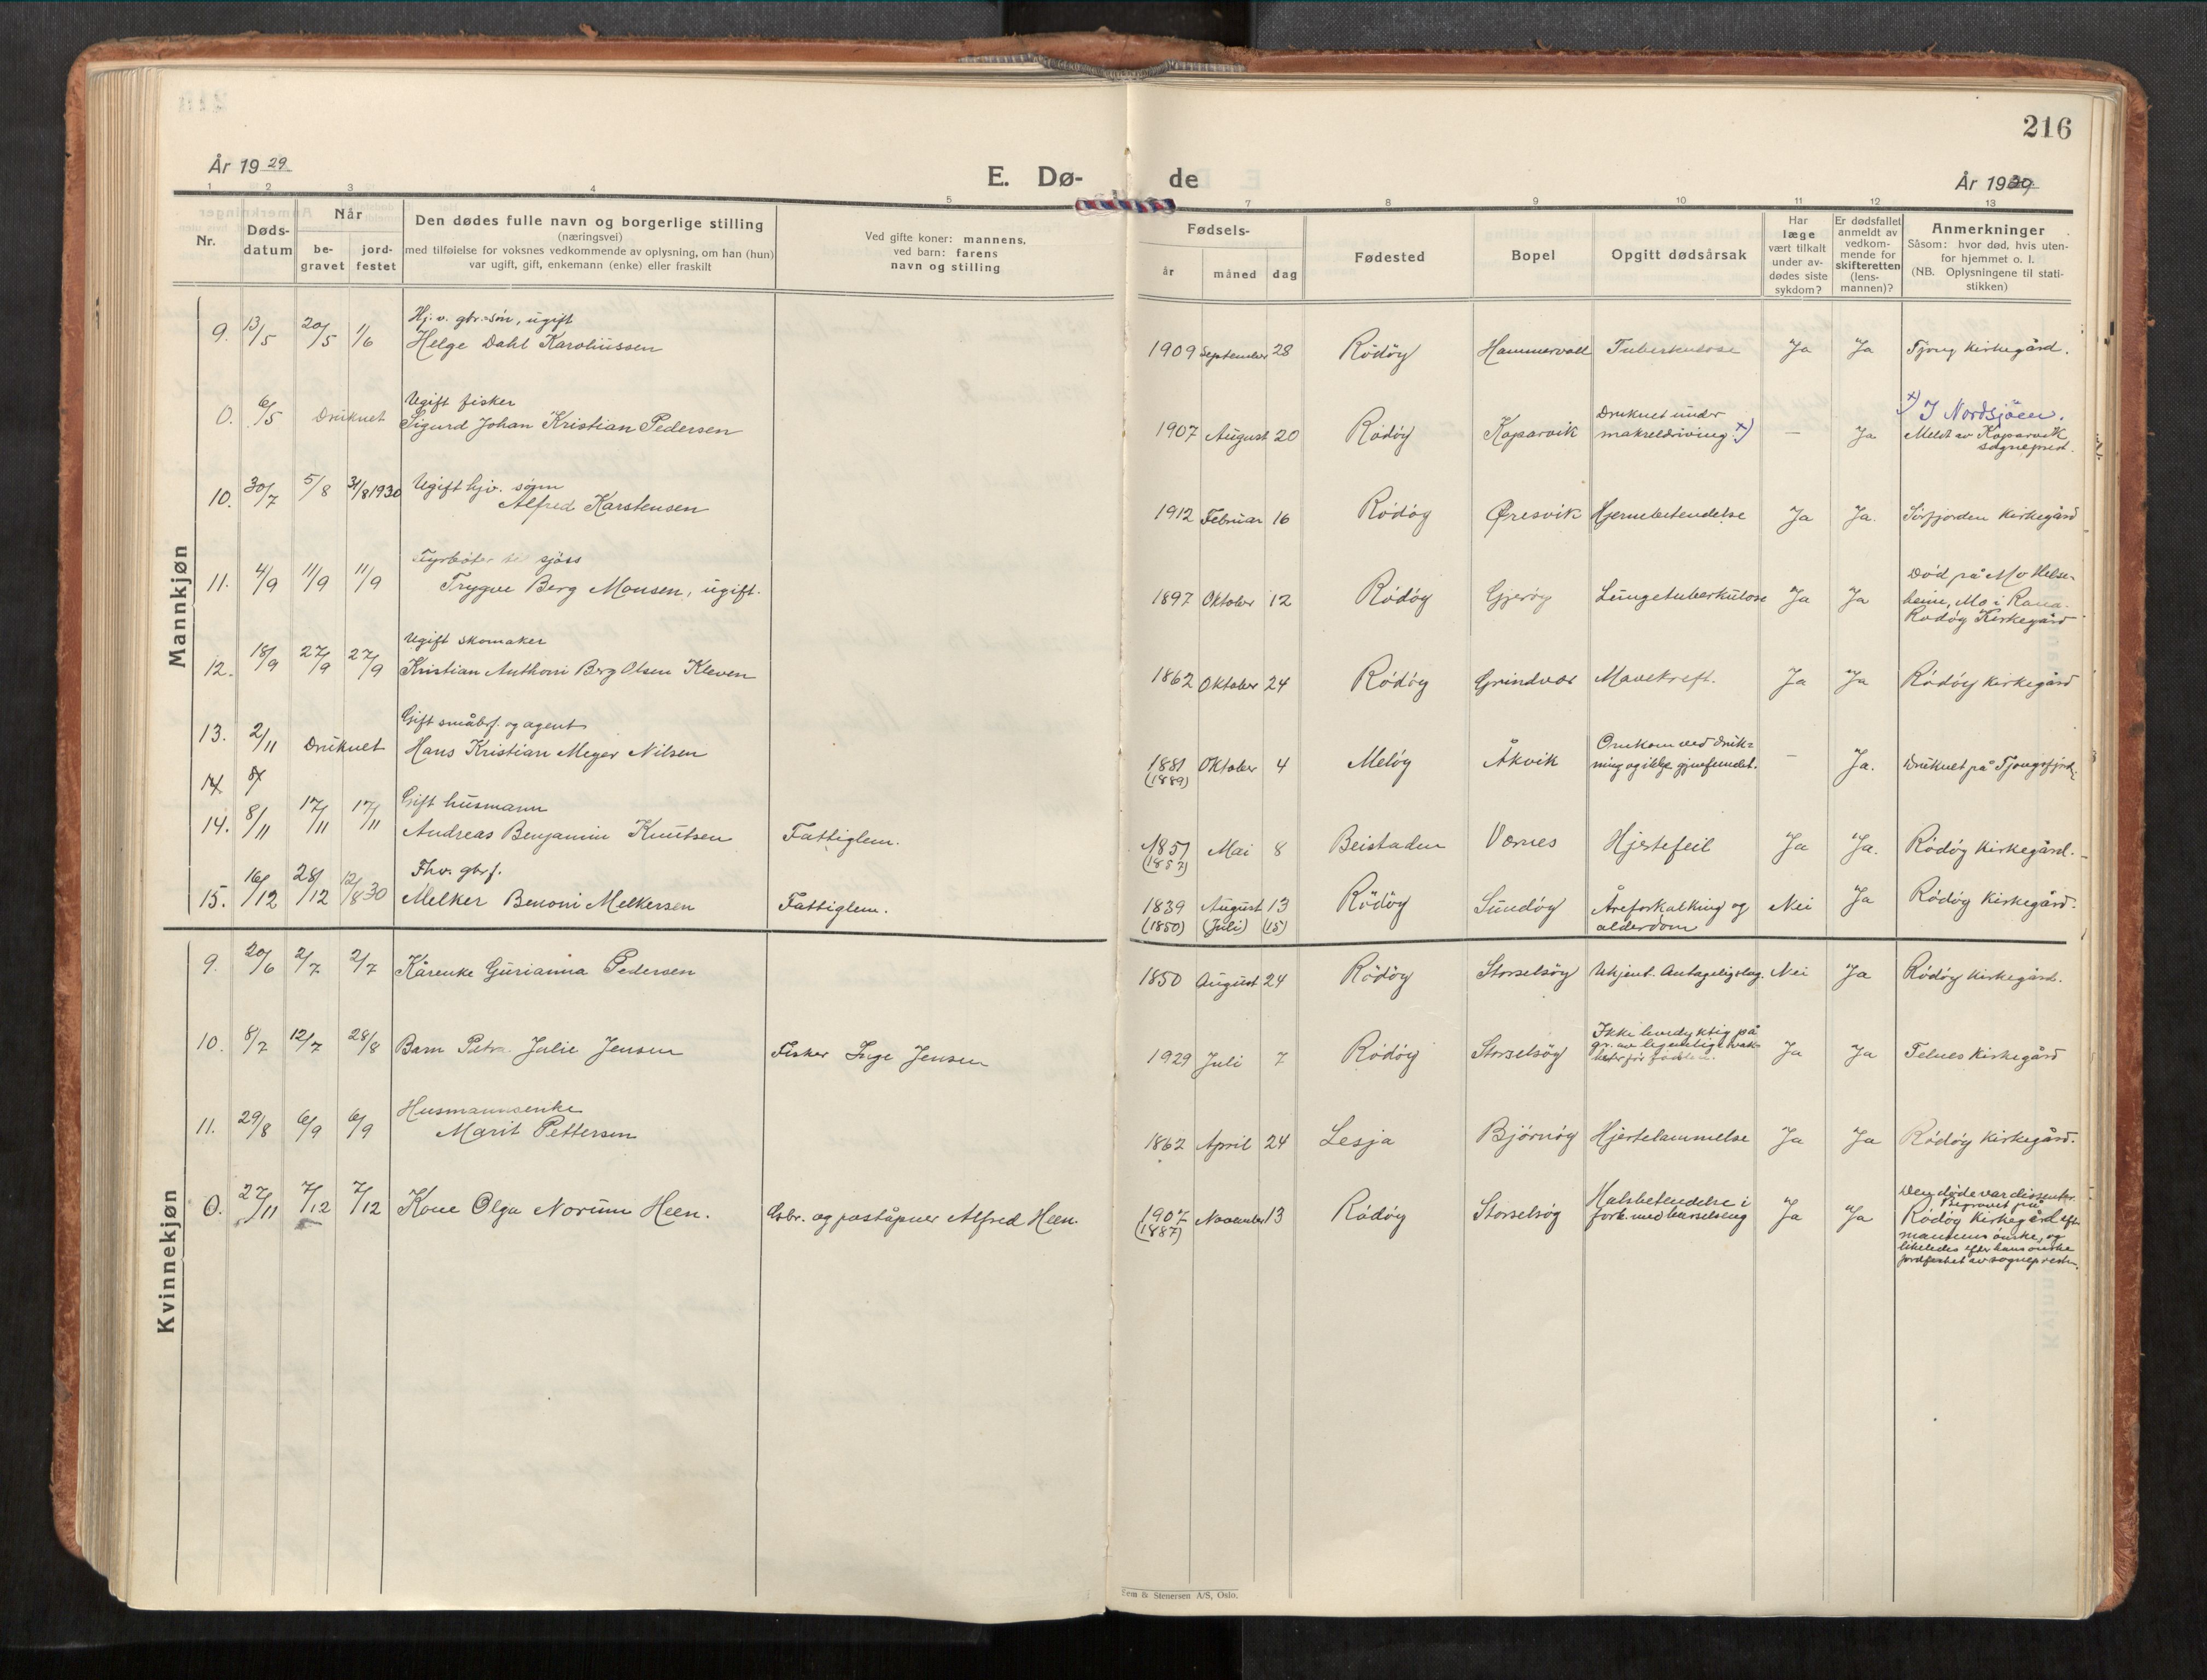 216
År 1929
E. Dø-
de
År 1929
1 2 3 4 5
7 8 9 10 11 12 13
Nr.
Døds-
datum
Når
be-
gravet
jord-
festet
Den dødes fulle navn og borgerlige stilling
(næringsvei)
med tilføielse for voksnes vedkommende av oplysning, om han (hun)
var ugift, gift, enkemann (enke) eller fraskilt
Ved gifte koner: mannens,
ved barn: farens
navn og stilling
Fødsels-
år
måned
dag
Fødested
Bopel
Opgitt dødsårsak
Har
læge
vært tilkalt
under av-
dødes siste
sykdom?
Er dødsfallet
anmeldt av
vedkom-
mende for
skifteretten
(lens-
mannen)?
Anmerkninger
Såsom: hvor død, hvis uten-
for hjemmet o. l.
(NB. Oplysningene til stati-
stikken)
Mannkjøn
Hj. v. gbr. søn, ugift
9. 13/5 20/5 1/6 Helge Dahl Karoliussen
1909 September 28 Rödöy Hammervoll Tuberkulose Ja Ja Tjong Kirkegård.
Ugift fisker
0. 6/5 Druknet Sigurd Johan Kristian Pedersen
1907 August 20 Rödöy Kopervik Druknet under
makreldriving x) — Ja
x) I Nordsjöen.
Meldt av Kopervik
sogneprest.
Ugift hjv. sönn
10. 30/7 5/8 31/8 1930 Alfred Karstensen
1912 Februar 16 Rödöy Øresvik Hjernebetendelse Ja Ja. Sörfjorden Kirkegård
Fyrböter til sjöss
11. 4/9 11/9 11/9 Trygve Berg Monsen, ugift.
1897 Oktober 12 Rödöy Gjeröy Lungetuberkulose Ja Ja
Död på Mo Helse-
heim, Mo i Rana.
Rödöy Kirkegård
Ugift skomaker
12. 18/9 27/9 27/9 Kristian Anthoni Berg Olsen Kleven
1862 Oktober 24 Rödöy Grindvor Mavekreft. Ja Ja Rödöy Kirkegård
Gift småbrf. og agent
13. 2/11 Druknet Hans Kristian Meyer Nilsen
1881 Oktober 4 Melöy Åkvik Omkom ved druk-
(1889) ning og ikke gjenfundet. — Ja. Druknet på Tjongsfjord.
14. 8/
Gift husmann
14. 8/11 17/11 17/11 Andreas Benjamin Knutsen Fattiglem.
1851 Mai 8 Beistaden Værnes Hjertefeil Ja Ja. Rödöy Kirkegård.
(1857)
Fhv. gbrf.
15. 16/12 28/12 12/8 30 Melker Benoni Melkersen Fattiglem.
1839 August 13 Rödöy Sundöy Åreforkalkning og Nei Ja Rödöy Kirkegård.
(1850) (Juli) (15) alderdom
Kvinnekjøn
9. 20/6 2/7 2/7 Kårenke Gurianna Pedersen
1850 August 24 Rödöy Storselsöy Ukjent. Antagelig slag. Nei Ja Rödöy Kirkegård.
10. 8/7 12/7 28/8 Barn Petra Julie Jensen Fisker Inge Jensen
1929 Juli 7 Rödöy Storselsöy Ikke levedyktig på
gr. av legemlig svak-
het før fødselen. Ja Ja Telnes Kirkegård
Husmannsenke
11. 29/8 6/9 6/9 Marit Pettersen
1862 April 24 Lesja Björnöy Hjertelammelse Ja Ja Rödöy Kirkegård.
0. 27/11 7/12 7/12 Kone Olga Norum Heen. Gsbr. og poståpner Alfred Heen.
1907 November 13 Rödöy Storselsöy Halsbetendelse i
(1887) forb. med barselseng Ja Ja
Den døde var dissenter.
Begravet på
Rödöy Kirkegård eft.
mannens önske, og
likeledes efter hans önske
jordfestet av sogneprest.
Sem & Stenersen A/S, Oslo.